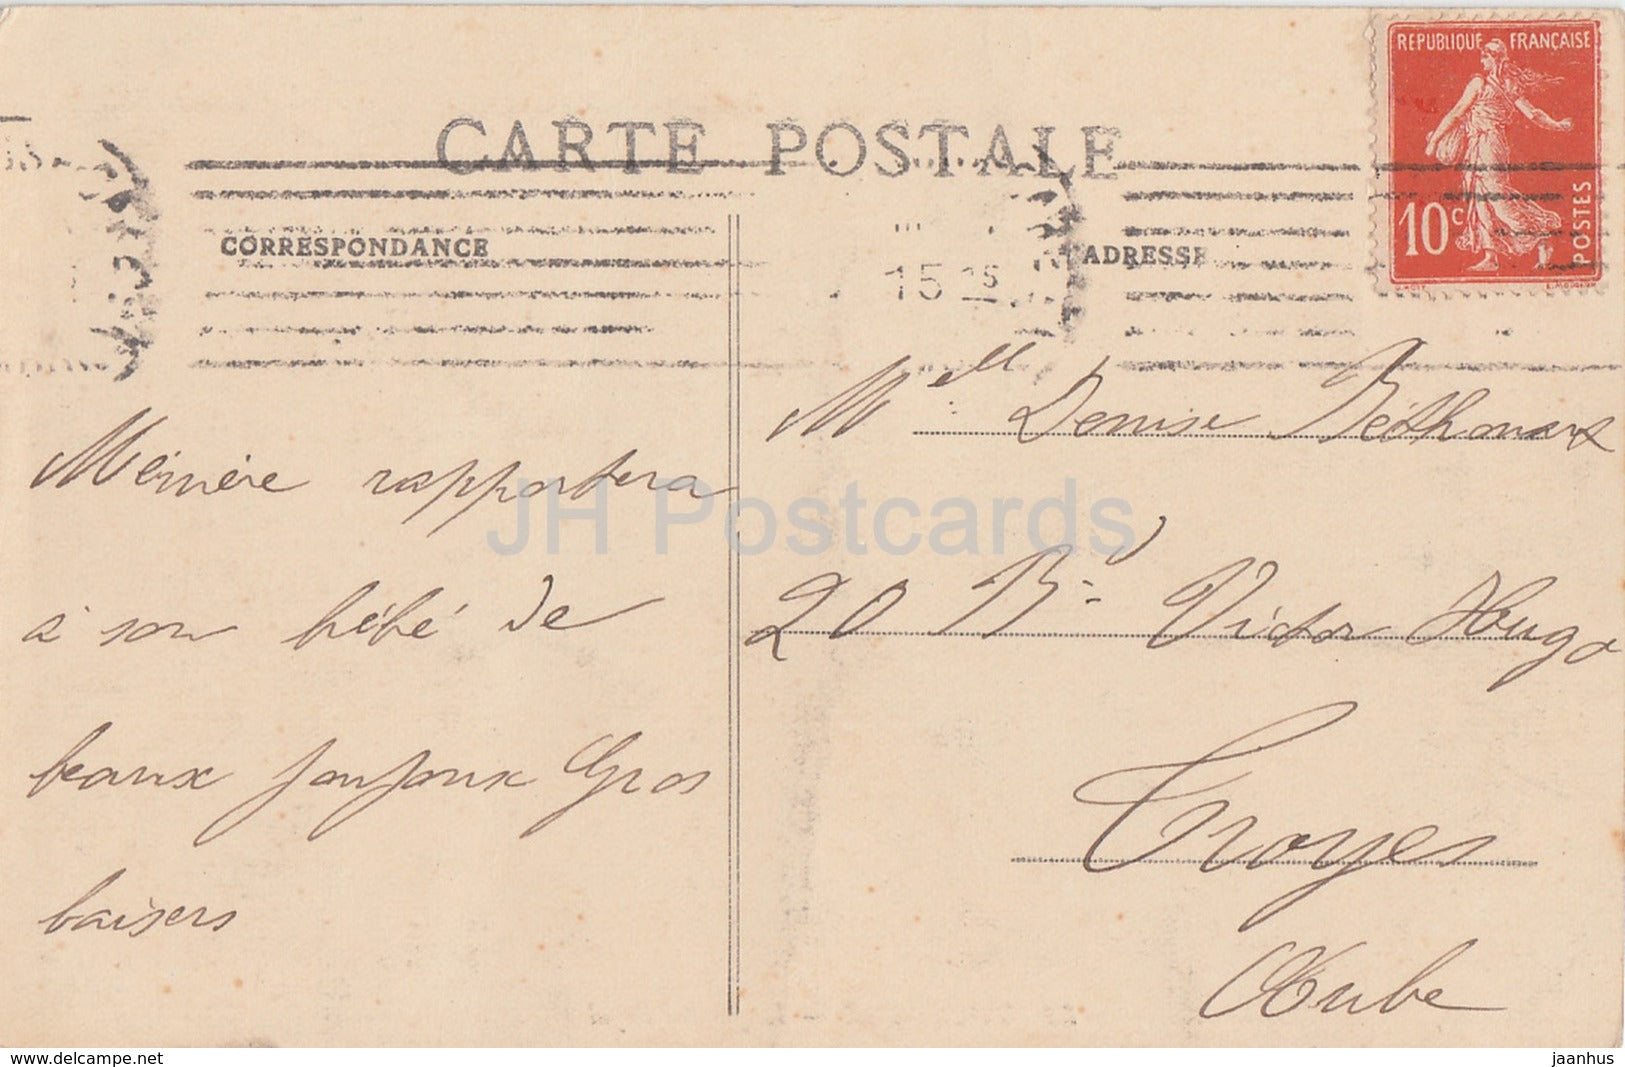 CARTE POSTALE
REPUBLIQUE FRANÇAISE
10c
POSTES
CORRESPONDANCE
ADRESSE
15 15
Mémère rapportera
à son bébé de
beaux joujoux Gros
baisers
Melle Denise
20 Bd Victor Hugo
Troyes
Aube
JH Postcards
www.delcampe.net
jaanhus